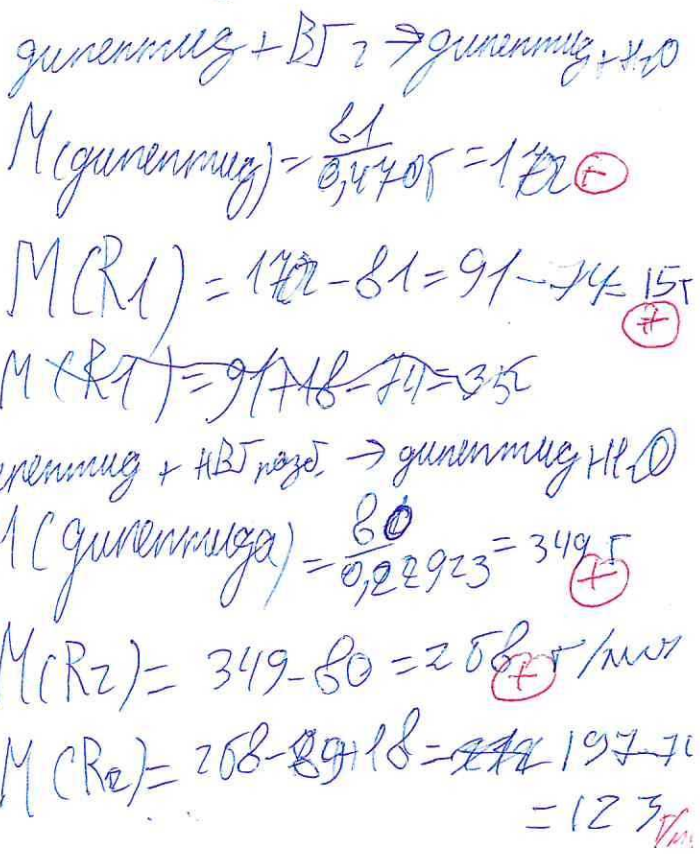 дипептид + Br₂ → дипептид + H₂O
M(дипептид) = 81/0,4705 = 172 +
M(R1) = 172 - 81 = 91 - 74 = 15г +
M(R1) = 91+18-74=35г
пептид + HBr разб. → дипептид + H₂O
(дипептида) = 80/0,22923 = 349 г +
M(R2) = 349 - 80 = 268 г/моль +
M(R2) = 268 - 89 + 18 = 197-74
= 123 г/м